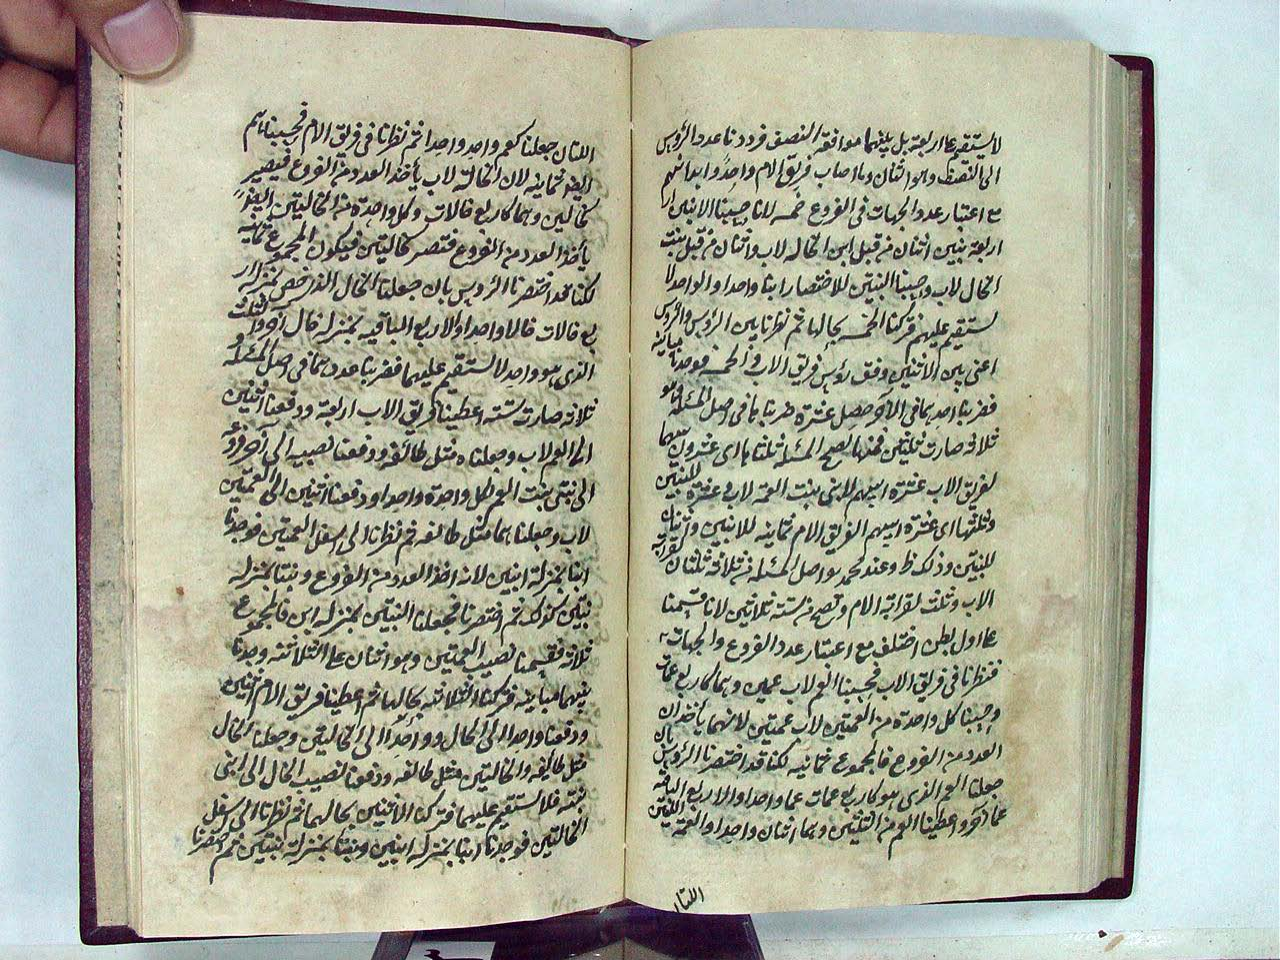 لا يستقيم على اربعة بل بينهما موافقة بالنصف فرددنا عدد الرؤس
الى النصف وهو اثنان وما اصاب فريق الام واحد وابدانهم
مع اعتبار عدد الجهات في الفروع خمسة لانا حسبنا الابنين
اربعة بنين اثنان من قبل ابن الخالة لاب واثنان من قبل بنت
الخال لاب وحسبنا البنتين للاختصار ابنا واحدا والواحد لا
يستقيم عليهم فتركنا الخمسة بحالها ثم نظرنا بين الرؤس والرؤس
اعني بين الاثنين وفق رؤس فريق الاب والخمسة فوجدنا مباينة
فضربنا احدهما في الآخر حصل عشرة ضربناها في اصل المسئلة وهو
ثلاثة صارت ثلثين فمنها تصح المسئلة ثلثاها اى عشرون سهما
لفريق الاب عشرة اسهم لابنى بنت العمة لاب وعشرة للبنتين
وثلثها اى عشرة اسهم لفريق الام ثمانية للابنين واثنان
للبنتين وذلك ظ وعند محمد هو اصل المسئلة من ثلاثة ثلثان لقرابة
الاب وثلث لقرابة الام وتصح من ستة ثلاثين لانا قسمنا
على اول بطن اختلف مع اعتبار عدد الفروع والجهات
فنظرنا في فريق الاب فحسبنا العم لاب عمين وهما كاربع عمات
وحسبنا كل واحدة من العمتين لاب عمتين لانهما يأخذان
العدد من الفروع فالمجموع ثمانية لكنا قد اختصرنا الرؤس بان
جعلنا العم الذى هو كاربع عمات عما واحدا والاربع الباقية
عما آخر واعطينا العم من الثلثين وهما اثنان واحدا والعمة اللتين
اللتا
اللتان جعلنا كعم واحد واحدا ثم نظرنا في فريق الام فحسبناهم
ايضا ثمانية لان الخالة لاب يأخذ العدد من الفروع فيصير
كخالين وهما كاربع خالات وكل واحدة من الخالتين ايضا
يأخذ العدد من الفروع فتصر كخالتين فيكون المجموع ثمانية
لكنا قد اختصرنا الرؤس بان جعلنا الخال الذى خص بمنزلة ار
بع خالات خالا واحدا والاربع الباقية بمنزلة خال آخر والثلث
الذى هو واحد لا يستقيم عليهما فضربنا عددهما في اصل المسئلة و
ثلاثة صارت ستة اعطينا فريق الاب اربعة ودفعنا اثنين
الى العم لاب وجعلناه مثل طائفة ودفعنا نصيبه الى آخر فروعه
الى بنتى بنت العم لكل واحدة واحدا ودفعنا اثنين الى العمتين
لاب وجعلناهما مثل طائفة ثم نظرنا الى اسفل العمتين فوجدنا
ابنا بمنزلة ابنين لانه اخذ العدد من الفروع وبنتا بمنزلة
بنتين كذلك ثم اختصرنا فجعلنا البنتين بمنزلة ابن فالمجموع
ثلاثة فقسمنا نصيب العمتين وهو اثنان على الثلاثة وجدنا
بينهما مباينة فتركنا الثلاثة بحالها ثم اعطينا فريق الام اثنين
ودفعنا واحدا الى الخال وواحدا الى الخالتين وجعلنا الخال
مثل طائفة والخالتين مثل طائفة ودفعنا نصيب الخال الى ابنى
بنته فلا يستقيم عليهما فتركنا الاثنين بحالهما ثم نظرنا الى اسفل
الخالتين فوجدنا ابنا بمنزلة ابنين وبنتا بمنزلة بنتين ثم اختصرنا